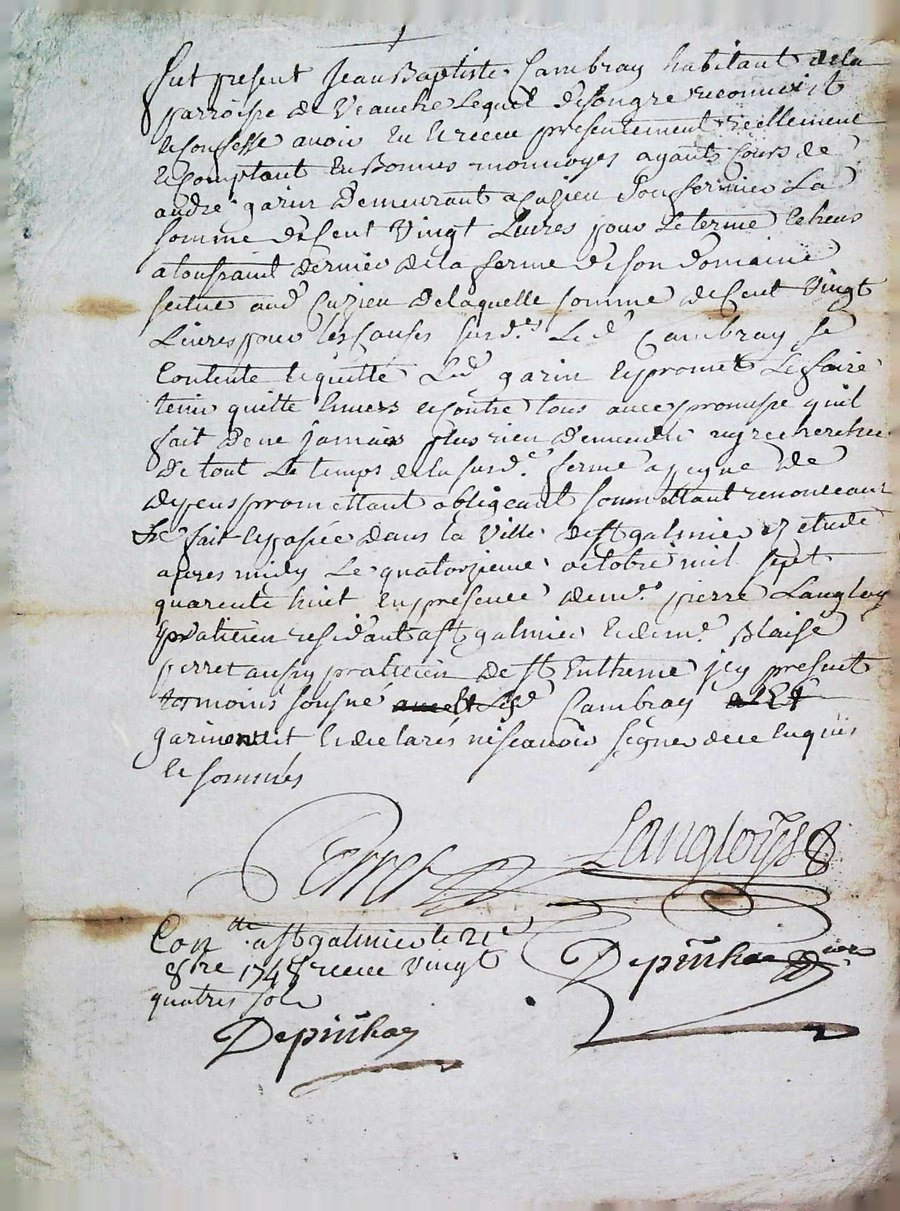 fut present Jean Baptiste Cambray habitant de la
parroisse de Veauche lequel de son gre reconnoit
et confesse avoir eu et receu presentement reellement
et comptant en bonnes monnoyes ayants cours de
andre garin demeurant a Cuzieu son fermier La
somme de Cent Vingt Livres pour le terme echeus
a toussaint dernier de la ferme de son domaine
scitue aud Cuzieu de laquelle somme de Cent Vingt
Livres pour les causes susdes Led Cambray se
Contente et quitte Led garin et promet Le faire
tenir quitte envers et contre tous avec promesse quil
fait de ne jamais plus rien demender ny rechercher
de tout Le temps de la susde ferme a peyne de
depens promettant obligeant soumettant renonceant
&c fait et passée dans la Ville de st galmier et etude
apres midy Le quatorzieme octobre mil sept
quarente huit en presence de me pierre Langloys
praticien residant a st galmier et de me Blaise
perret aussy praticien de st Entheme icy present
temoins sousné Led Cambray et
garin ont declarés ne scavoir signer de ce enquis
et sommés
Perret
Langloys
Con a st galmier le 21e
8bre 1748 receu Vingt
quatres sols
Depinhac
Depinhac